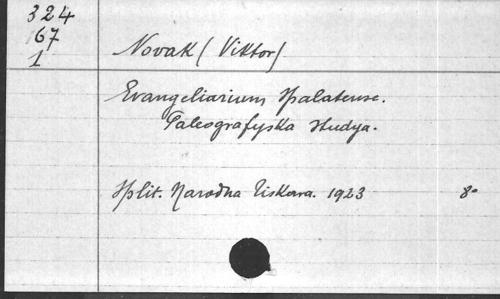 324
67
1
Novak (Viktor)
Evangeliarium Spalatense.
Paleografyska studya.
Split. Narodna Tiskara. 1923 8°